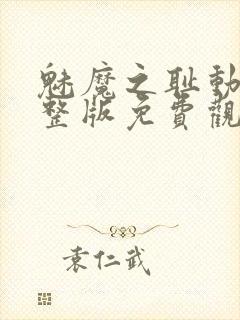 魅魔之耻動
整版免費觀
袁仁武